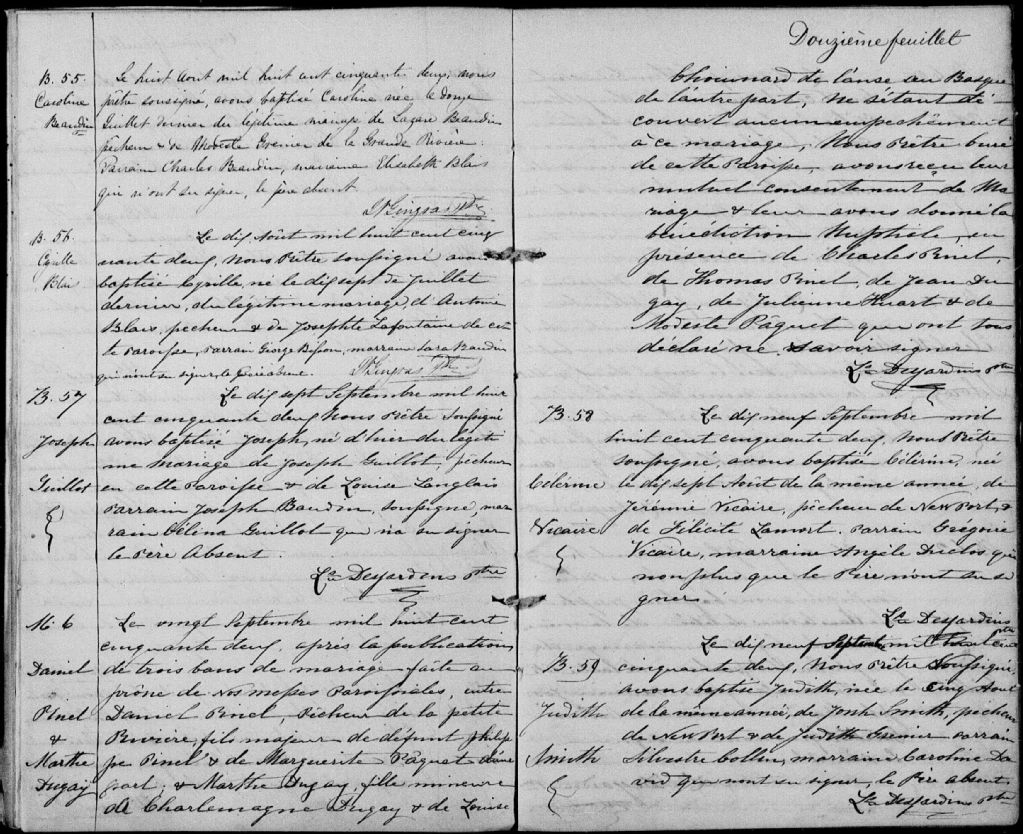 B. 55.
Caroline
Beaudin
Le huit Aout mil huit cent cinquante deux, nous
prêtre soussigné, avons baptisé Caroline née le douze
Juillet dernier du légitime mariage de Lazare Beaudin
pêcheur & de Modeste Grenier de la Grande Rivière.
Parrain Charles Beaudin, marraine Elisabeth Blais
qui n'ont su signer, le père absent.
N. Gingras Ptre
B. 56.
Cyrille
Blais
Le dix Août mil huit cent cinq
uante deux, Nous Prêtre soussigné avons
baptisé Cyrille, né le dix sept de Juillet
dernier, du légitime mariage, d'Antoine
Blais, pecheur & de Josephte Lafontaine de cet
te Paroisse, Parrain George Bisson, marraine Sara Baudin
qui n'ont su signer, le Père absent. N. Gingras Ptre
B. 57
Joseph
Guillot
Le dix sept Septembre mil huit
cent cinquante deux Nous Prêtre Soussigné
avons baptisé Joseph, né d'hier du légiti
me mariage de Joseph Guillot, pêcheur
en cette Paroisse & de Louise Langlais
Parrain Joseph Baudin, soussigné, mar
raine Célina Guillot qui n'a su signer
le Père Absent.
Ls Desjardins Ptre
M. 6
Daniel
Pinel
&
Marthe
Dugay
Le vingt Septembre mil huit cent
cinquante deux, après la publication
de trois bans de mariage faite au
prône de Nos messes Paroissiales, entre
Daniel Pinel, Pêcheur de la petite
Rivière, fils majeur de défunt Philip
pe Pinel & de Marguerite Pâquet d'une
part; & Marthe Dugay, fille mineure
de Charlemagne Dugay & de Louise
Douzième feuillet
Chouinard de l'anse au Basque
de l'autre part, Ne s'étant dé-
couvert aucun empechêment
à ce mariage, Nous Prêtre Curé
de cette Paroisse, avons reçu leur
mutuel consentement de Ma
riage & leur avons donné la
bénédiction Nuptiale, en
présence de Charles Pinel,
de Thomas Pinel, de Jean Du
gay, de Julienne Huart & de
Modeste Pâquet qui ont tous
déclaré ne savoir signer
Ls Desjardins Ptre
B. 58
Célérine
Vicaire
Le dix neuf Septembre mil
huit cent cinquante deux, Nous Prêtre
soussigné, avons baptisé Célérine, née
le dix sept Aout de la même année, de
Jérémie Vicaire, pêcheur de New Port, &
de Félicité Lamort Parrain Grégoire
Vicaire, marraine Angèle Duclos qui
non plus que le Père n'ont su si
gner
Ls Desjardins
Ptre
B. 59
Judith
Smith
Le dix neuf Septemb mil huit cent
cinquante deux, Nous Prêtre soussigné,
avons baptisé Judith, née le Cinq Aout
de la même année, de John Smith, pêcheur
de New Port & de Judith Grenier Parrain
Silvestre Collin, marraine Caroline Da
vid qui n'ont su signer, le Père absent.
Ls Desjardins Ptre